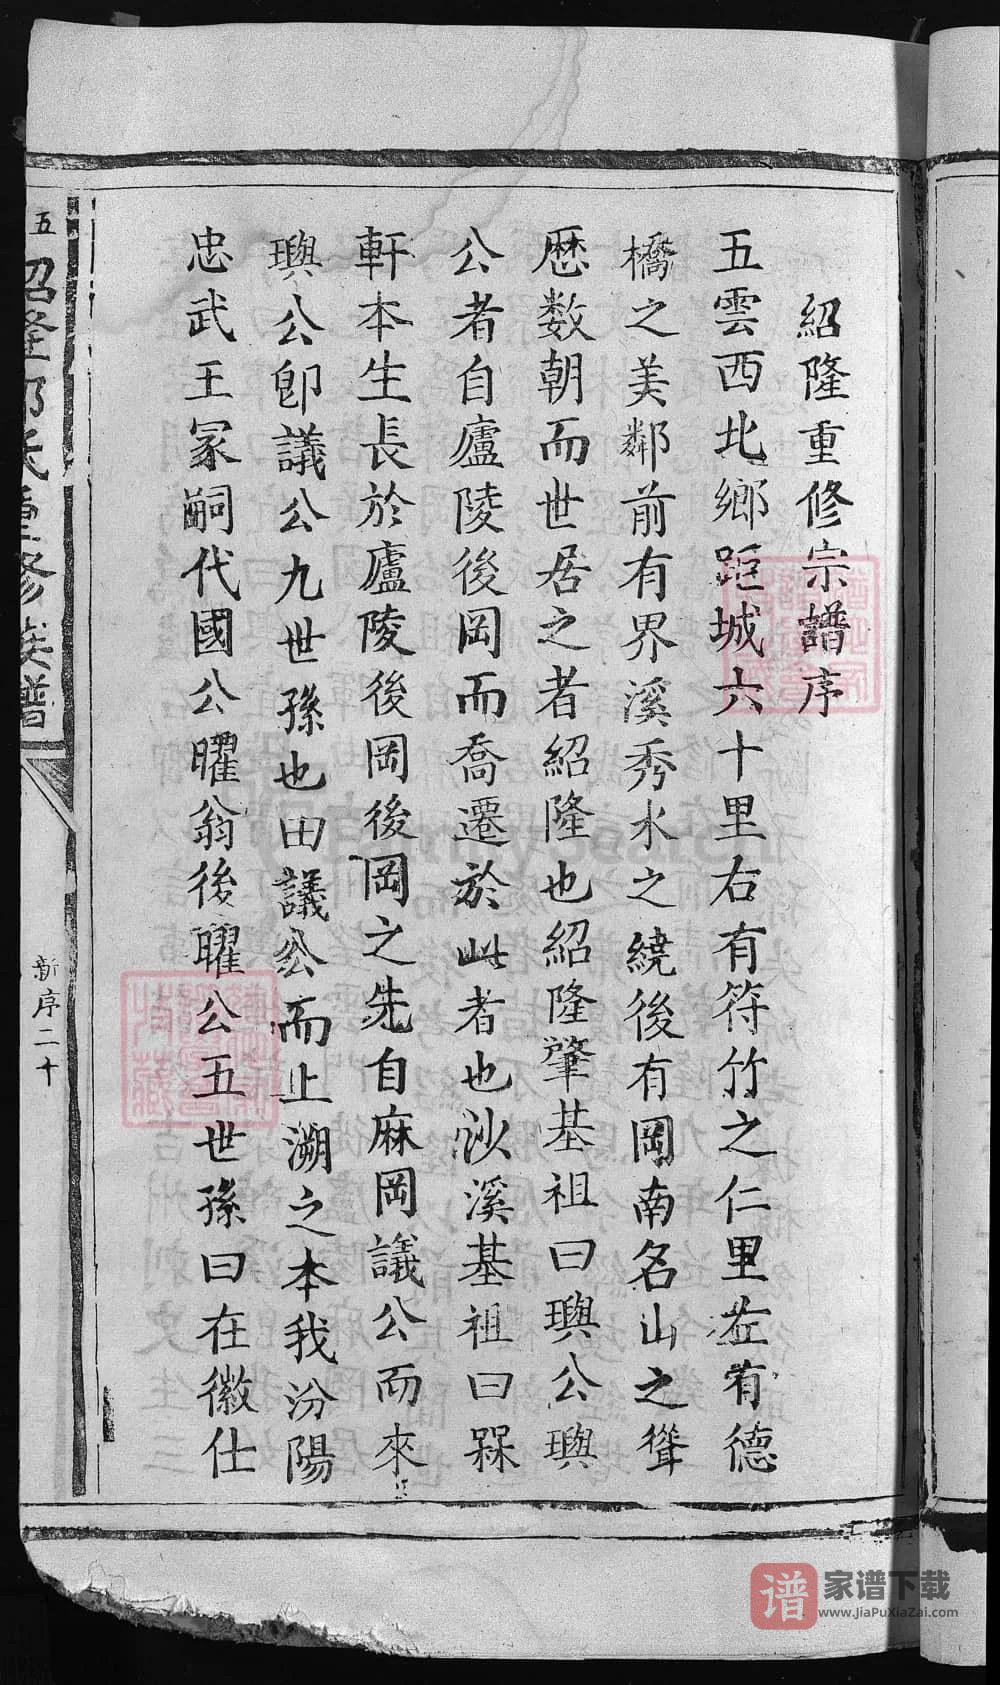 紹隆重修宗譜序
五雲西北鄉距城六十里右有符竹之仁里左有德
橋之美鄰前有界溪秀水之繞後有岡南名山之聳
歷数朝而世居之者紹隆也紹隆肇基祖曰璵公璵
公者自廬陵後岡而喬遷於此者也沙溪基祖曰槑
軒本生長於廬陵後岡後岡之先自麻岡議公而來
璵公卽議公九世孫也由議公而上溯之本我汾陽
忠武王冢嗣代國公曜翁後曜公五世孫曰在徽仕
五
紹隆郭氏重修族譜
新序二十
家谱下载
www.JiaPuXiaZai.com